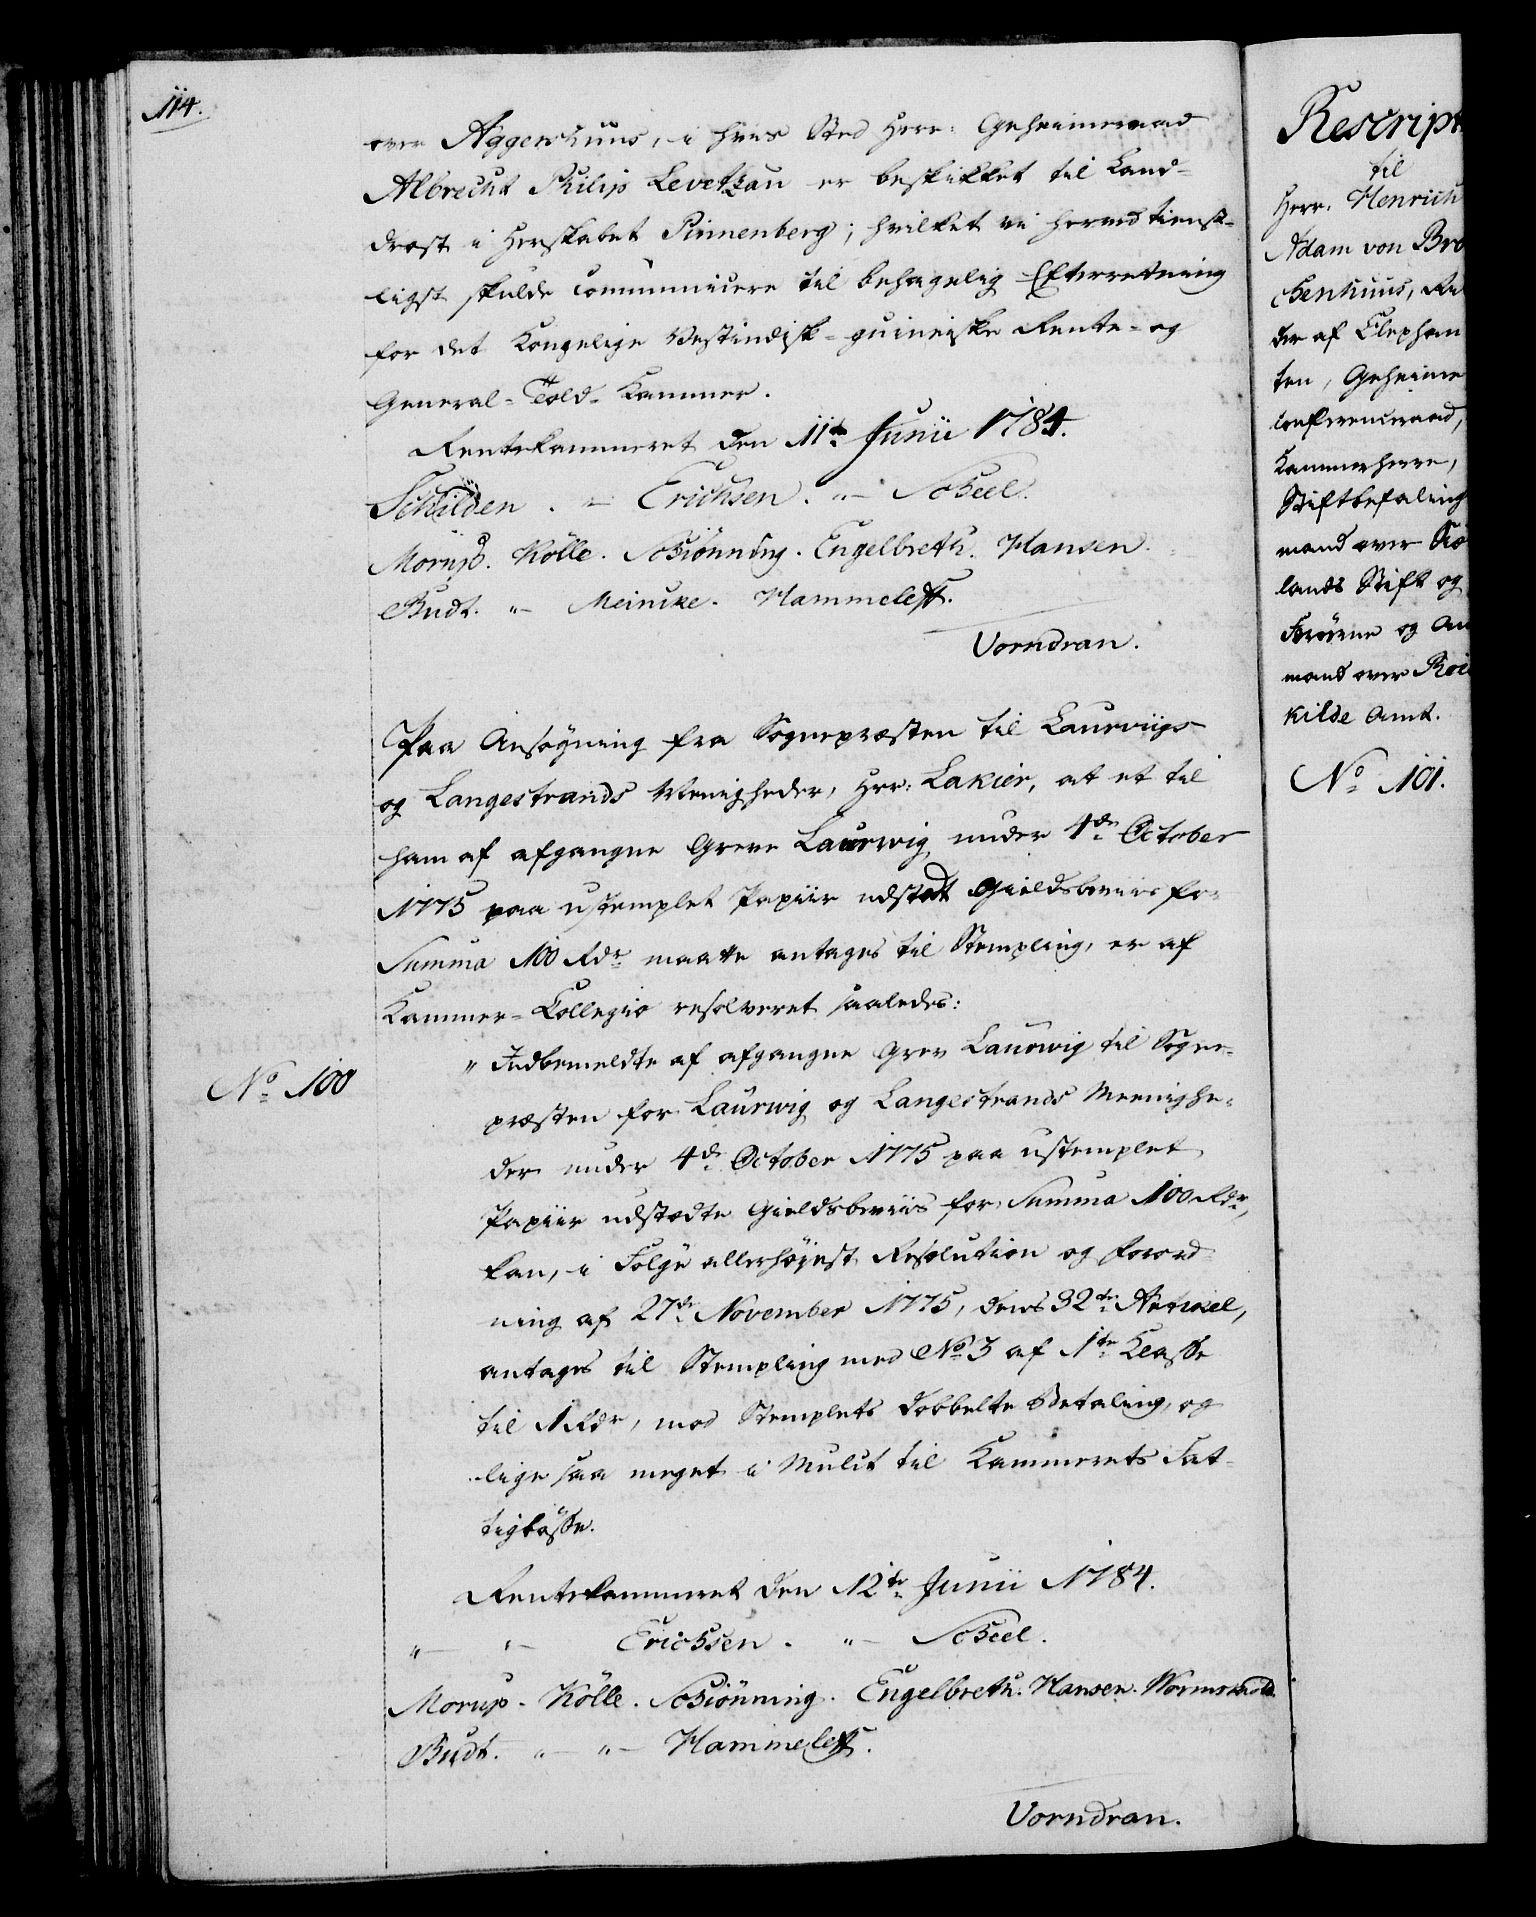 114.
over Aggershuus, i hvis Sted Herr: Geheimeraad
Albrecht Philip Levetzau er beskikket til Land-
drost i Herskabet Pinnenberg; hvilket vi herved tienst-
ligst skulde communicere til behagelig Efterretning
for det Kongelige Vestindisk-guineiske Rente- og
General-Told-Kammer.
Rentekammeret den 11te Junii 1784.
Schilden. " Erichsen. " Scheel.
Morup. Kölle. Schiönning. Engelbreth. Hansen.
Budt. " Meincke. Hammeleff.
Vorndran.
Paa Ansøgning fra Sognepræsten til Laurviigs
og Langestrands Menigheder, Hrr: Lakier, at et til
ham af afgangne Greve Laurwig under 4de October
1775 paa ustemplet Papiir udstædt Gieldsbeviis for
Summa 100 Rdr maatte antages til Stempling, er af
Kammer-Collegio resolveret saaledes:
No 100
" Indbemeldte af afgangne Grev Laurwig til Sogne-
præsten for Laurwig og Langestrands Meenighe-
der under 4de October 1775 paa ustemplet
Papiir udstædte Gieldsbeviis for Summa 100 Rdr,
kan, i Følge allerhøyest Resolution og Forord-
ning af 27de November 1775, dens 32te Artikel,
antages til Stempling med No 3 af 1te Classe
til 1 Rdr, mod Stemplets dobbelte Betaling, og
lige saa meget i Mulct til Kammerets Fat-
tigbøsse.
Rentekammeret den 12te Junii 1784.
" " Erichsen. " Scheel.
Morup. Kölle. Schiönning. Engelbreth. Hansen. Wormskiold.
Budt. " " Hammeleff.
Vorndran.
Rescript
til
Herr: Henrich
Adam von Bro
ckenhuus, Rid
der af Elephan
ten, Geheime
Conferenceraad,
Kammerherre,
Stiftbefalings
mand over Siæ
lands Stift og
Færøerne og Amt
mand over Roes
kilde Amt.
No 101.